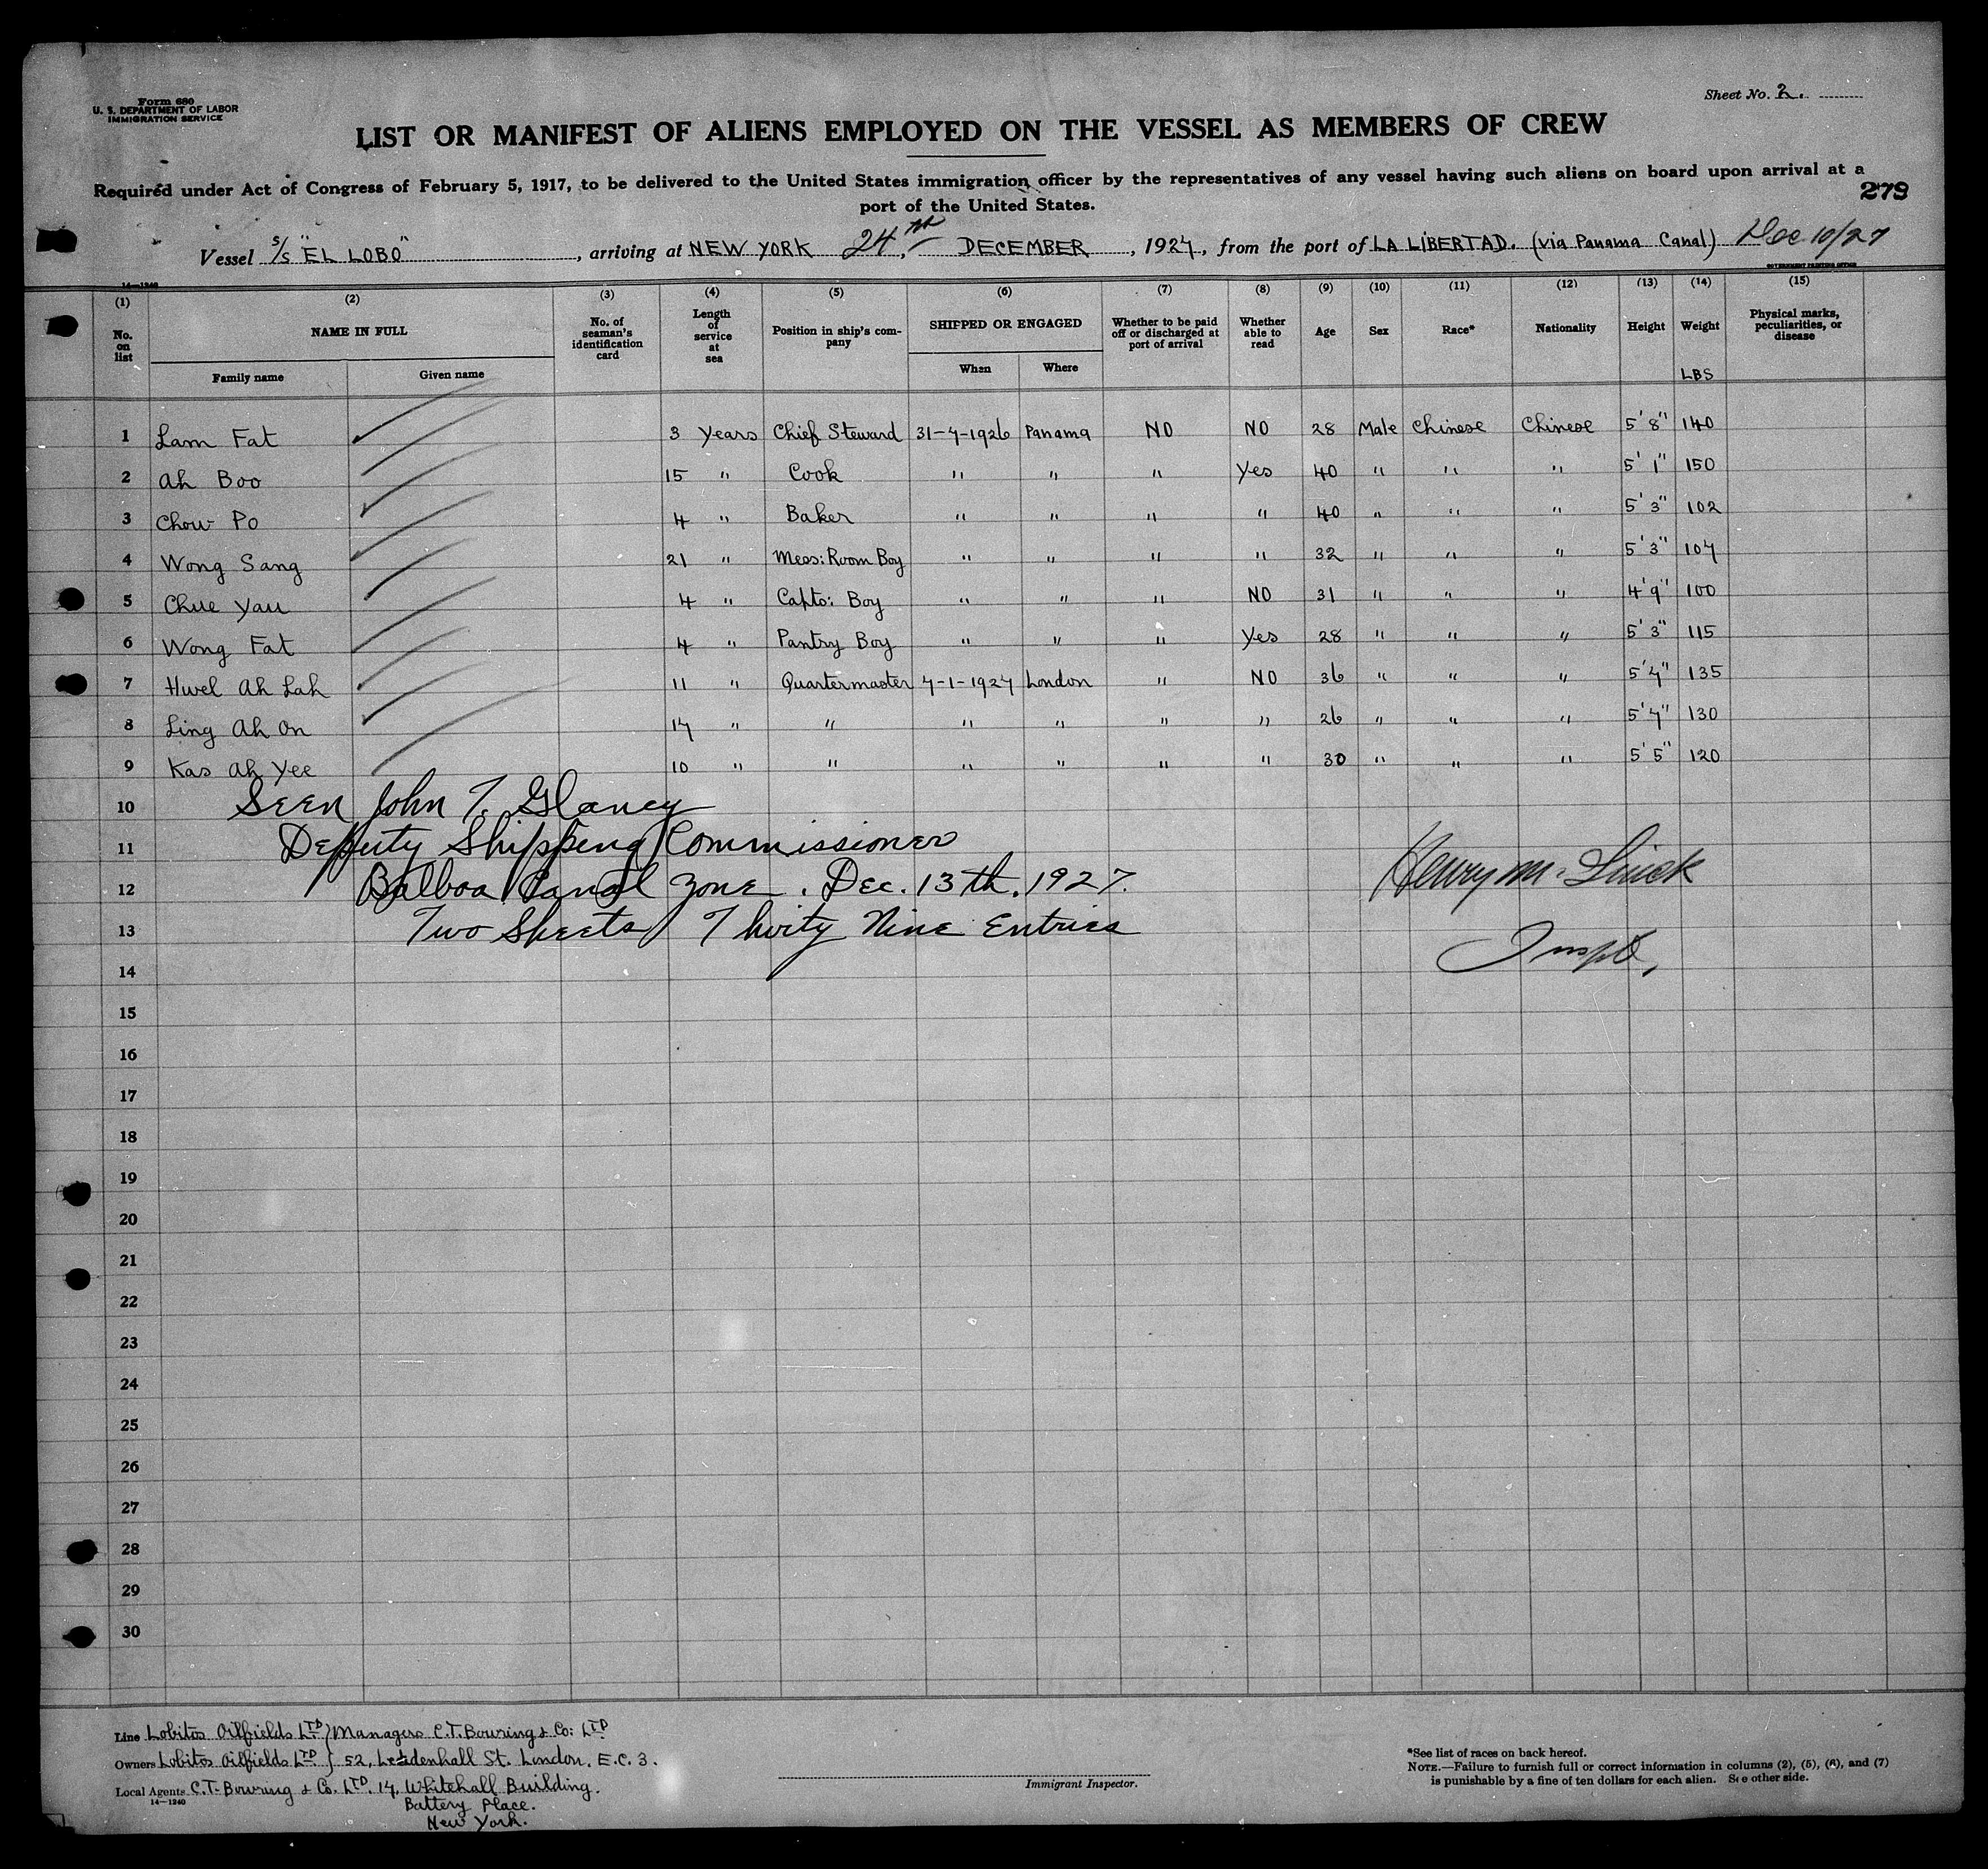 Form 680
U. S. DEPARTMENT OF LABOR
IMMIGRATION SERVICE
Sheet No. 2.
LIST OR MANIFEST OF ALIENS EMPLOYED ON THE VESSEL AS MEMBERS OF CREW
Required under Act of Congress of February 5, 1917, to be delivered to the United States immigration officer by the representatives of any vessel having such aliens on board upon arrival at a
port of the United States.
279
Vessel S/S "EL LOBO", arriving at NEW YORK 24th DECEMBER, 1927, from the port of LA LIBERTAD. (via Panama Canal) Dec 10/27
GOVERNMENT PRINTING OFFICE
14—1240
(1) (2) (3) (4) (5) (6) (7) (8) (9) (10) (11) (12) (13) (14) (15)
No. on list NAME IN FULL No. of seaman's identification card Length of service at sea Position in ship's company SHIPPED OR ENGAGED Whether to be paid off or discharged at port of arrival Whether able to read Age Sex Race* Nationality Height Weight Physical marks, peculiarities, or disease
Family name Given name When Where LBS
1 Lam Fat 3 Years Chief Steward 31-7-1926 Panama NO NO 28 Male Chinese Chinese 5' 8" 140
2 Ah Boo 15 " Cook " " " Yes 40 " " " 5' 1" 150
3 Chow Po 4 " Baker " " " " 40 " " " 5' 3" 102
4 Wong Sang 21 " Mess: Room Boy " " " " 32 " " " 5' 3" 107
5 Chue Yau 4 " Capts: Boy " " " NO 31 " " " 4' 9" 100
6 Wong Fat 4 " Pantry Boy " " " Yes 28 " " " 5' 3" 115
7 Hwel Ah Lah 11 " Quartermaster 7-1-1927 London " NO 36 " " " 5' 7" 135
8 Ling Ah On 17 " " " " " " 26 " " " 5' 7" 130
9 Kas Ah Yee 10 " " " " " " 30 " " " 5' 5" 120
10 Seen John T. Glancy
11 Deputy Shipping Commissioner
12 Balboa Canal Zone. Dec. 13th. 1927.
Henry M.
13 Two Sheets Thirty Nine Entries
Inspt.
14
15
16
17
18
19
20
21
22
23
24
25
26
27
28
29
30
Line Lobitos Oilfields LTD } Managers C.T. Bowring & Co: LTD
Owners Lobitos Oilfields LTD } 52, Leadenhall St. London. E.C. 3.
Local Agents C.T. Bowring & Co. LTD. 17, Whitehall Building.
14—1240
Battery Place.
New York.
Immigrant Inspector.
*See list of races on back hereof.
NOTE.—Failure to furnish full or correct information in columns (2), (5), (6), and (7)
is punishable by a fine of ten dollars for each alien. See other side.